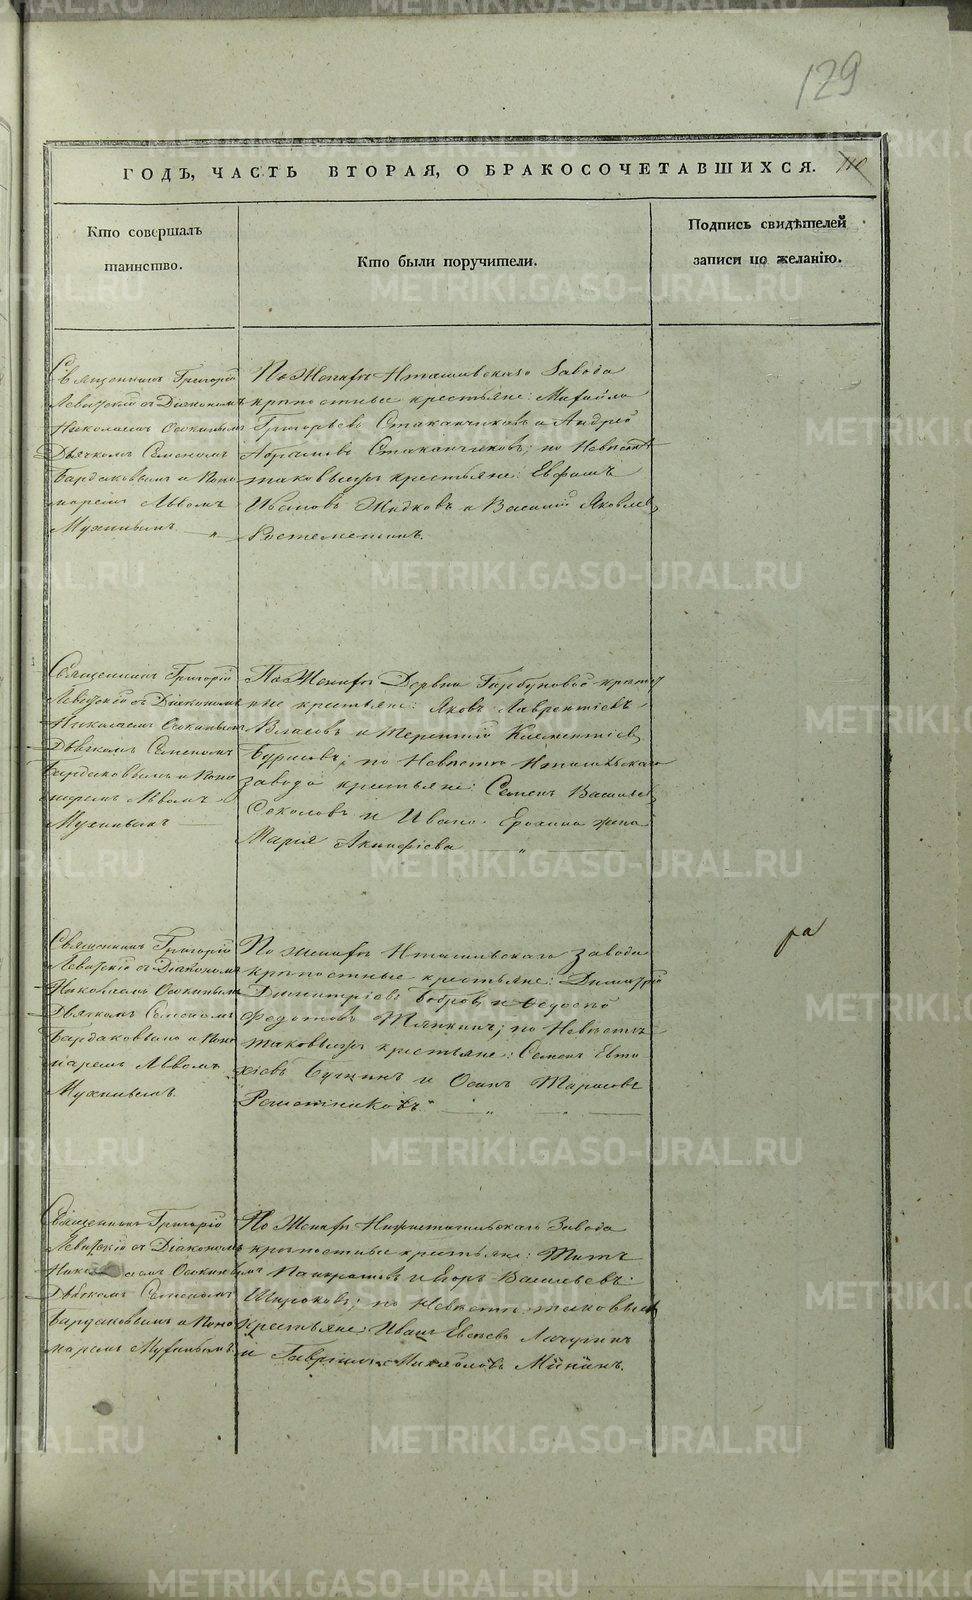 129
ГОДЪ, ЧАСТЬ ВТОРАЯ, О БРАКОСОЧЕТАВШИХСЯ. 110
Кто совершалъ
таинство.
Кто были поручители.
Подпись свидѣтелей
записи по желанію.
Священникъ Григорій
Левитскій съ Діакономъ
Николаемъ Осокинымъ
Дьячкомъ Семеномъ
Бардаковымъ и Поно
маремъ Львомъ
Мухинымъ.
По Женихѣ Завода
крѣпостные крестьяне: Михайло
Григорьевъ Стаканчиковъ и Андрей
Абрамовъ Стаканчиковъ; по Невѣстѣ
таковыежъ крестьяне:
Ивановъ Жидковъ и Василій Яковлевъ
Священникъ Григорій
Левитскій съ Діакономъ
Николаемъ Осокинымъ
Дьячкомъ Семеномъ
Бардаковымъ и Поно
маремъ Львомъ
Мухинымъ
По Женихѣ Дервни Горбуновой крѣпост
ные крестьяне: Яковъ Лаврентіевъ
Власовъ и Терентій Климентіевъ
по Невѣстѣ
завода крестьяне: Семенъ Васильевъ
Соколовъ и Ивана Ерохина жена
Марія Акинфіева
Священникъ Григорій
Левитскій съ Діакономъ
Николаемъ Осокинымъ
Дьячкомъ Семеномъ
Бардаковымъ и Поно
маремъ Львомъ
Мухинымъ.
По женихѣ завода
крѣпостные крестьяне: Димитрій
Димитріевъ Бобровъ, и Федосѣй
Федотовъ по Невѣстѣ
таковыежъ крестьяне: Семенъ Евти
хіевъ и Осипъ Тарасовъ
Решетниковъ.
ра
Священникъ Григорій
Левитскій съ Діакономъ
Николаемъ Осокинымъ
Дьячкомъ Семеномъ
Бардаковымъ и Поно
маремъ Мухинымъ.
По Женихѣ Нижнетагильскаго Завода
крѣпостные крестьяне: Титъ
Панкратовъ и Егоръ Васильевъ
Широковъ; по Невѣстѣ таковыежъ
крестьяне: Иванъ
и Гавріилъ Михайловъ Мининъ.
METRIKI.GASO-URAL.RU